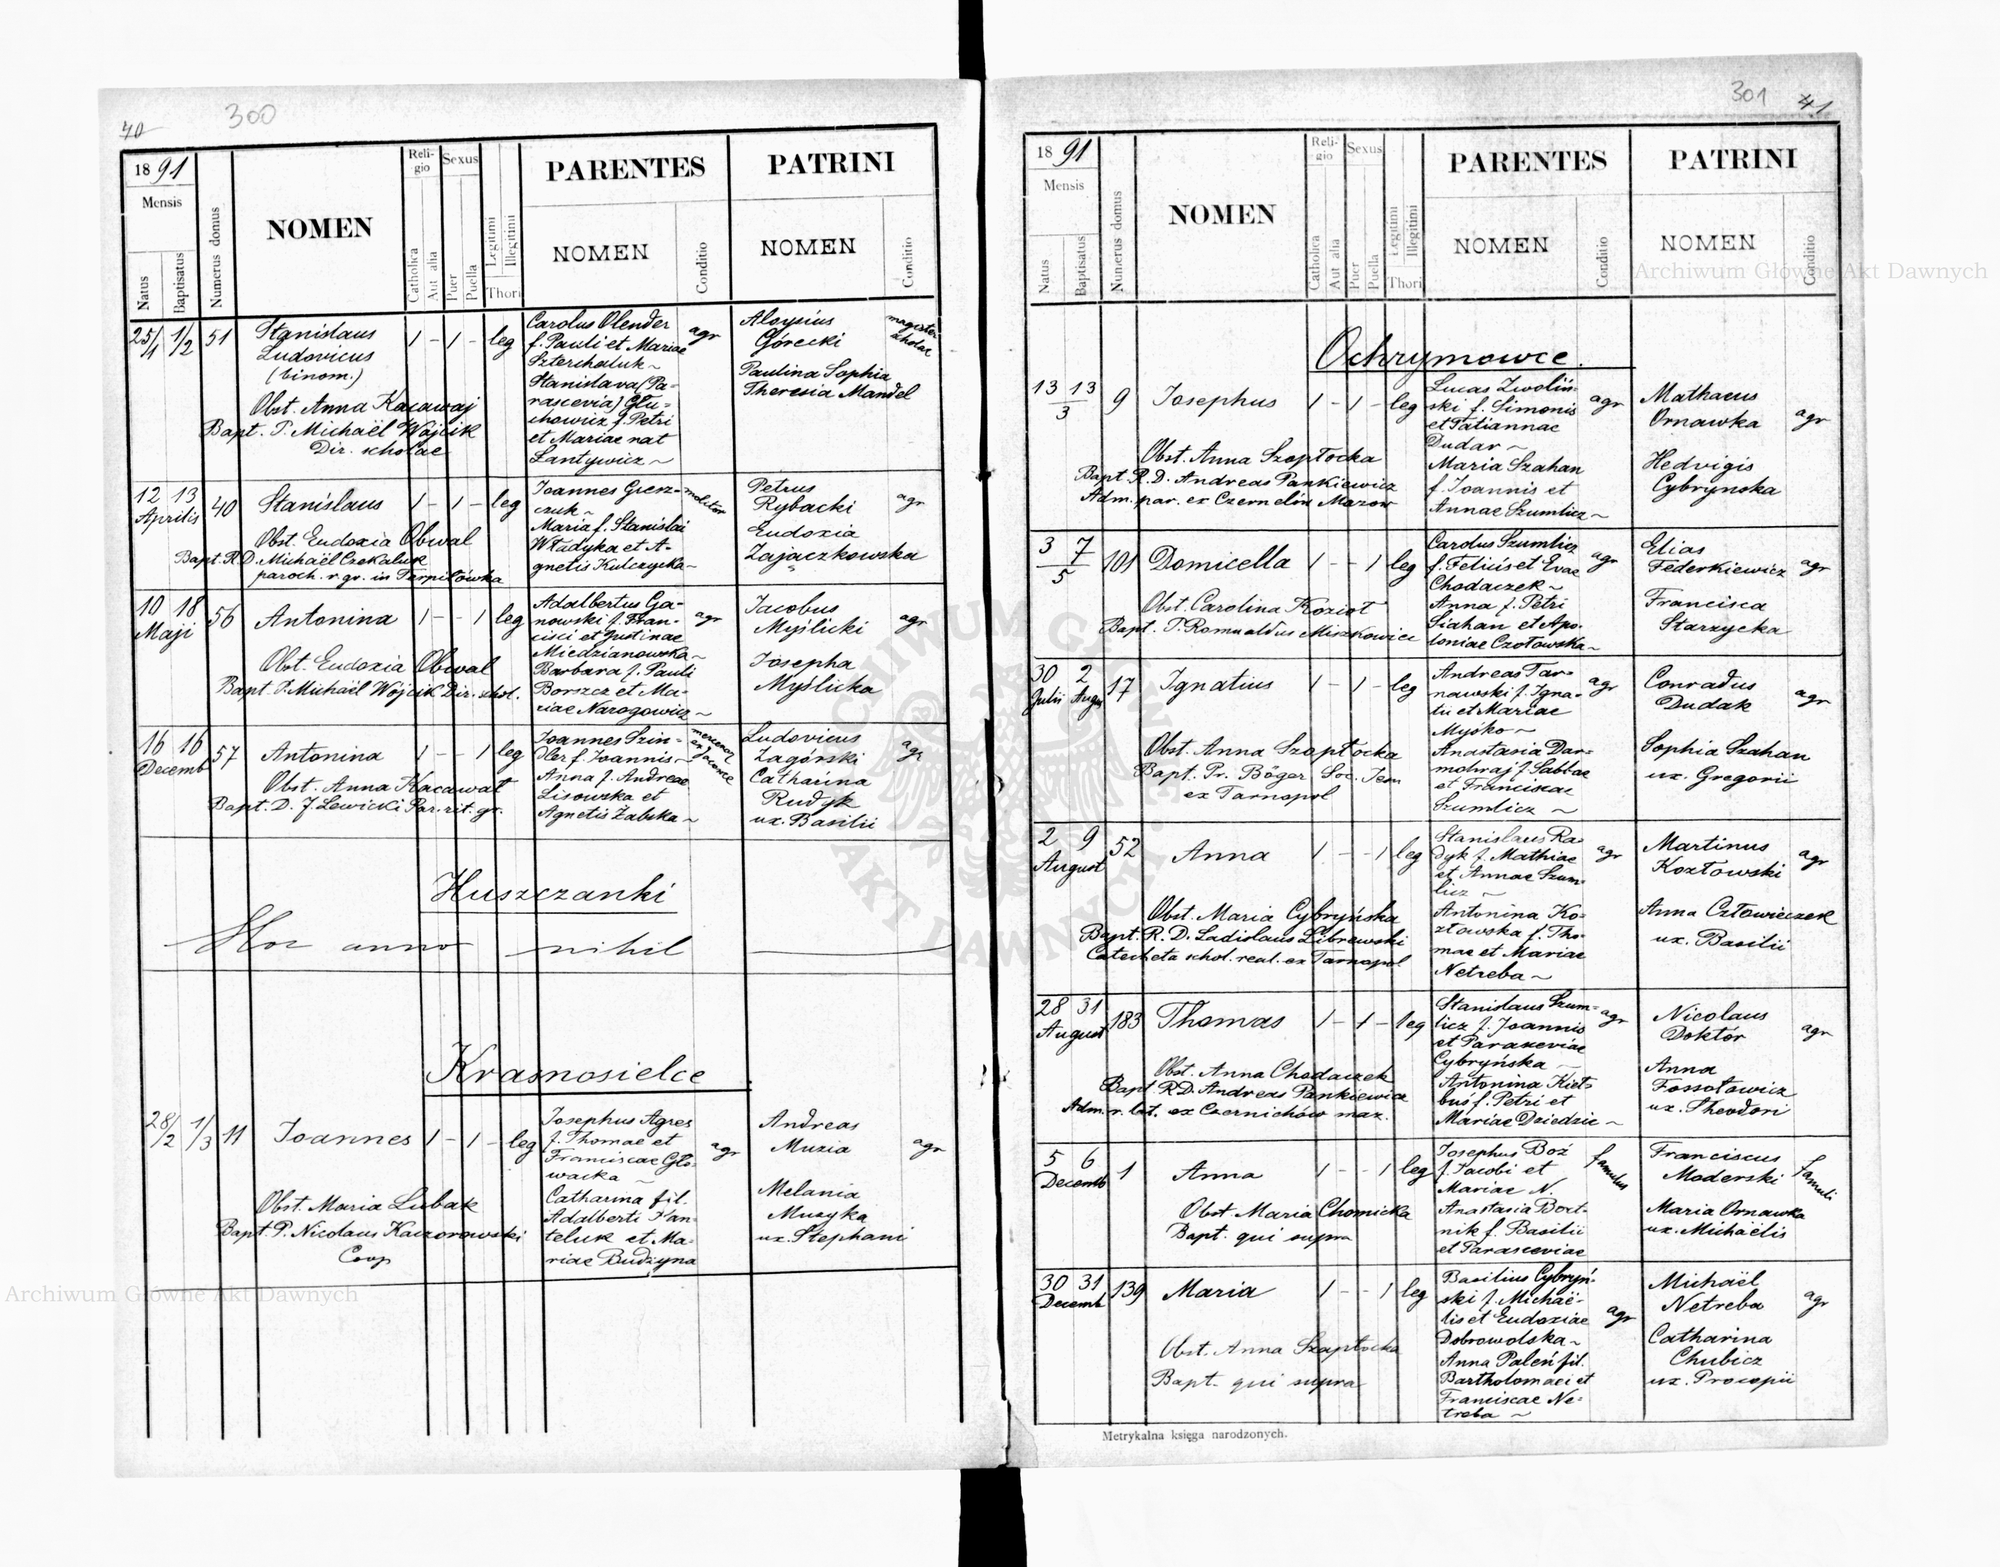 40
300
1891
Mensis
Natus
Baptisatus
Numerus domus
NOMEN
Religio
Catholica
Aut alia
Sexus
Puer
Puella
Legitimi
Illegitimi
Thori
PARENTES
NOMEN
Conditio
PATRINI
NOMEN
Conditio
25/1 1/2 51 Stanislaus 1 - 1 - leg
Ludovicus
(binom.)
Obst. Anna Kacawaj
Bapt. P. Michaël Wojcik
Dir. scholae
Carolus Olender agr
f. Pauli et Mariae
Szterchaluk ~
Stanislava (Pa-
rascevia) Głu-
chowicz f. Petri
et Mariae nat
Lantywicz ~
Aloysius magister
Górecki scholae
Paulina Sophia
Theresia Mandel
12 13 40 Stanislaus 1 - 1 - leg
Aprilis
Obst. Eudoxia Obwal
Bapt. R. D. Michaël Czekaluk
paroch. r. gr. in Terpiłówka
Joannes Gresz- molitor
czuk ~
Maria f. Stanislai
Władyka et A-
gnetis Kulczycka ~
Petrus
Rybacki agr
Eudoxia
Zajączkowska
10 18 56 Antonina 1 - - 1 leg
Maji
Obst. Eudoxia Obwal
Bapt. P. Michaël Wojcik Dir. schol.
Adalbertus Ga-
nowski f. Fran- agr
cisci et Justinae
Miedzianowska ~
Barbara f. Pauli
Borszcz et Ma-
riae Narogowicz ~
Jacobus
Myślicki agr
Josepha
Myślicka
16 16 57 Antonina 1 - - 1 leg
Decemb
Obst. Anna Kacawal
Bapt. D. J. Lewicki Par. rit. gr.
Joannes Szin-
dler f. Joannis ~
Anna f. Andreae
Lisowska et
Agnetis Żabska ~
Ludovicus
Zagórski agr
Catharina
Rudyk
ux. Basilii
Huszczanki
Hoc anno nihil
Krasnosielce
28/2 1/3 11 Joannes 1 - 1 - leg
Obst. Maria Lubak
Bapt. P. Nicolaus Kaczorowski
Coop
Josephus Agres
f. Thomae et agr
Franciscae Gło-
wacka ~
Catharina fil.
Adalberti Pan-
teluk et Ma-
riae Budzyna
Andreas
Muzia agr
Melania
Muzyka
ux. Stephani
301
41
1891
Mensis
Natus
Baptisatus
Numerus domus
NOMEN
Religio
Catholica
Aut alia
Sexus
Puer
Puella
Legitimi
Illegitimi
Thori
PARENTES
NOMEN
Conditio
PATRINI
NOMEN
Conditio
Ochrymowce.
13 13 9 Josephus 1 - 1 - leg
3
Obst. Anna Szaptocka
Bapt. R. D. Andreas Pankiewicz
Adm. par. ex Czernelów Mazow
Lucas Zwoliń-
ski f. Simonis agr
et Tatiannae
Dudar ~
Maria Szahan
f. Joannis et
Annae Szumlicz ~
Mathaeus
Ornawka agr
Hedvigis
Cybrynska
3 7 101 Domicella 1 - - 1 leg
5
Obst. Carolina Kozioł
Bapt. P. Romualdus Miszkowicz
Carolus Szumlicz
f. Felicis et Evae agr
Chodaczek ~
Anna f. Petri
Siahan et Apo-
loniae Czołowska ~
Elias
Federkiewicz agr
Francisca
Starzycka
30 2 17 Ignatius 1 - 1 - leg
Julii Augu
Obst. Anna Szaptocka
Bapt. Pr. Böger Soc. Jesu
ex Tarnopol
Andreas Tar-
nawski f. Igna- agr
tii et Mariae
Myśko ~
Anastasia Dar-
mohraj f. Sabbae
et Franciscae
Szumlicz ~
Conradus
Dudak agr
Sophia Szahan
ux. Gregorii
2 9 52 Anna 1 - - 1 leg
August
Obst. Maria Cybryńska
Bapt. R. D. Ladislaus Librewski
Catecheta schol. real. ex Tarnopol
Stanislaus Ra-
dyk f. Mathiae agr
et Annae Szum-
licz ~
Antonina Ko-
złowska f. Tho-
mae et Mariae
Netreba ~
Martinus
Kozłowski agr
Anna Człowieczek
ux. Basilii
28 31 183 Thomas 1 - 1 - leg
August
Obst. Anna Chodaczek
Bapt R. D. Andreas Pankiewicz
Adm. r. lat. ex Czernichów maz.
Stanislaus Szum-
licz f. Joannis agr
et Parasceviae
Cybryńska ~
Antonina Kieł-
bus f. Petri et
Mariae Dziedzic ~
Nicolaus
Doktór agr
Anna
Fossołowicz
ux. Theodori
5 6 1 Anna 1 - - 1 leg
Decemb
Obst Maria Chomicka
Bapt. qui supra
Josephus Boż famulus
f. Jacobi et
Mariae N.
Anastasia Bort-
nik f. Basilii
et Parasceviae
Franciscus
Moderski famuli
Maria Ornawka
ux. Michaëlis
30 31 139 Maria 1 - - 1 leg
Decemb
Obst. Anna Szaptocka
Bapt. qui supra
Basilius Cybryń-
ski f. Michaë-
lis et Eudoxiae agr
Dobrowolska ~
Anna Paleń fil.
Bartholomaei et
Franciscae Ne-
treba ~
Michaël
Netreba agr
Catharina
Chubicz
ux. Procopii
Metrykalna księga narodzonych.
Archiwum Główne Akt Dawnych
Archiwum Główne Akt Dawnych
ARCHIWUM GŁÓWNE AKT DAWNYCH